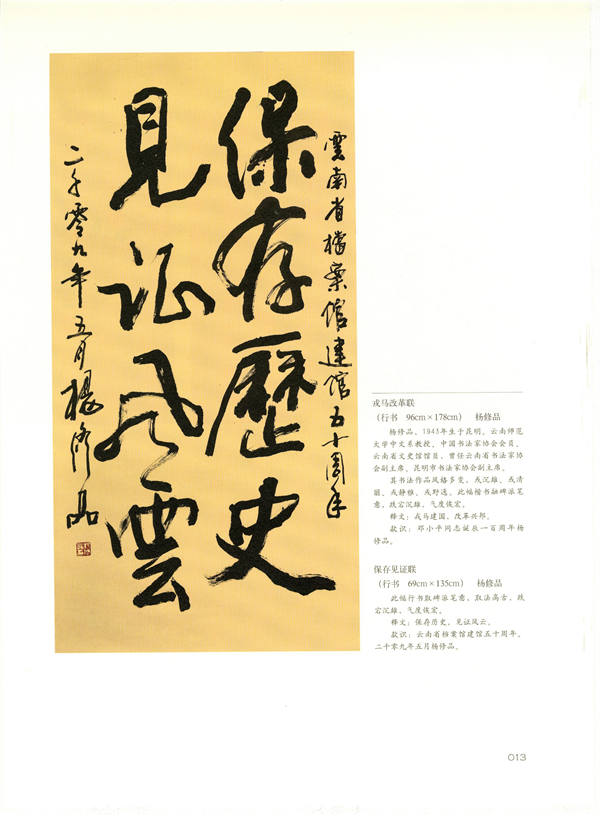 雲南省檔案馆建馆五十周年
保存歷史
見证风雲
二千零九年五月楊修品
戎马改革联
（行书　96cm×178cm）　杨修品
杨修品，1943年生于昆明。云南师范
大学中文系教授、中国书法家协会会员、
云南省文史馆馆员，曾任云南省书法家协
会副主席、昆明市书法家协会副主席。
其书法作品风格多变，或沉雄、或清
丽、或静雅、或野逸。此幅楷书融碑派笔
意，跌宕沉雄、气度恢宏。
释文：戎马建国，改革兴邦。
款识：邓小平同志诞辰一百周年杨
修品。
保存见证联
（行书　69cm×135cm）　杨修品
此幅行书取碑派笔意，取法高古，跌
宕沉雄、气度恢宏。
释文：保存历史，见证风云。
款识：云南省档案馆建馆五十周年。
二千零九年五月杨修品。
013